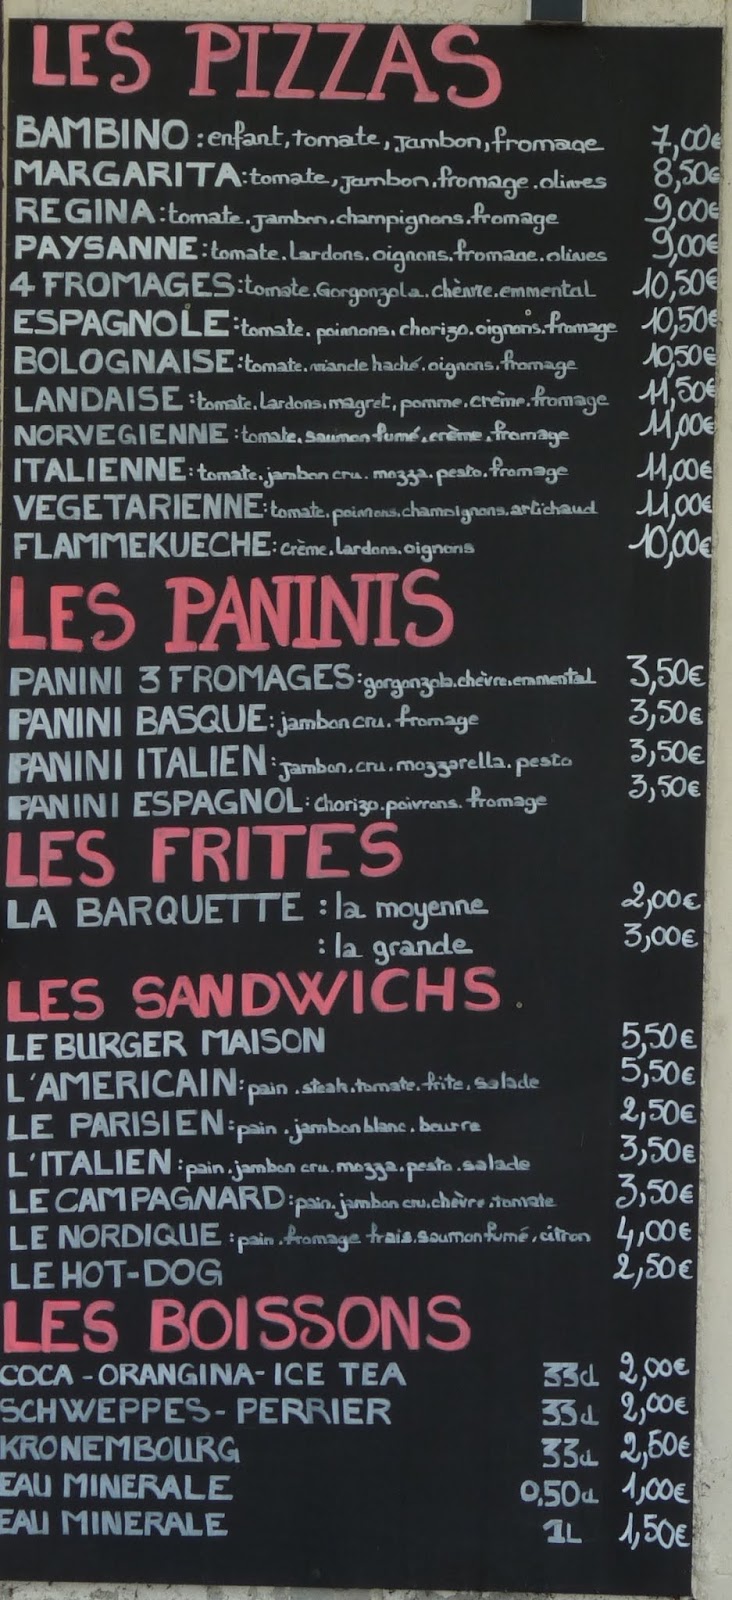 LES PIZZAS
BAMBINO : enfant, tomate, jambon, fromage 7,00€
MARGARITA: tomate, jambon. fromage. olives 8,50€
REGINA: tomate. jambon. champignons. fromage 9,00€
PAYSANNE: tomate. lardons. oignons. fromage. olives 9,00€
4 FROMAGES: tomate. Gorgonzola. chèvre. emmental 10,50€
ESPAGNOLE: tomate. poivrons. chorizo. oignons. fromage 10,50€
BOLOGNAISE: tomate. viande haché. oignons. fromage 10,50€
LANDAISE: tomate. lardons. magret, pomme. crème. fromage 11,50€
NORVEGIENNE: tomate. saumon fumé. crème. fromage 11,00€
ITALIENNE: tomate. jambon cru. mozza. pesto. fromage 11,00€
VEGETARIENNE: tomate. poivrons. champignons. artichaud 11,00€
FLAMMEKUECHE: crème. lardons. oignons 10,00€
LES PANINIS
PANINI 3 FROMAGES: gorgonzola. chèvre. emmental 3,50€
PANINI BASQUE: jambon cru. fromage 3,50€
PANINI ITALIEN: jambon. cru. mozzarella. pesto 3,50€
PANINI ESPAGNOL: chorizo. poivrons. fromage 3,50€
LES FRITES
LA BARQUETTE : la moyenne 2,00€
: la grande 3,00€
LES SANDWICHS
LE BURGER MAISON 5,50€
L'AMERICAIN: pain. steak. tomate. frite. salade 5,50€
LE PARISIEN: pain. jambon blanc. beurre 2,50€
L'ITALIEN: pain. jambon cru. mozza. pesto. salade 3,50€
LE CAMPAGNARD: pain. jambon cru. chèvre. tomate 3,50€
LE NORDIQUE: pain. fromage frais. saumon fumé. citron 4,00€
LE HOT-DOG 2,50€
LES BOISSONS
COCA - ORANGINA - ICE TEA 33cl 2,00€
SCHWEPPES - PERRIER 33cl 2,00€
KRONEMBOURG 33cl 2,50€
EAU MINERALE 0,50cl 1,00€
EAU MINERALE 1L 1,50€